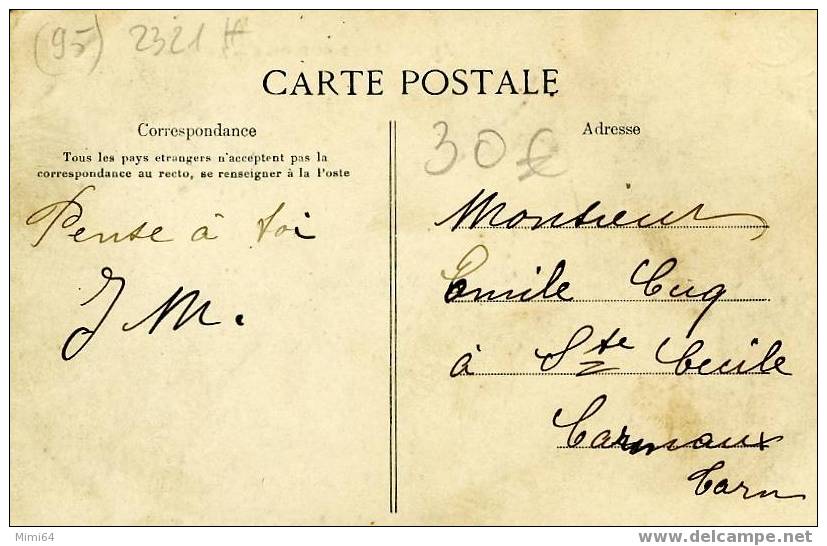 (95) 2321
CARTE POSTALE
Correspondance
Tous les pays etrangers n'acceptent pas la
correspondance au recto, se renseigner à la Poste
Pense à toi
J M.
30 €
Adresse
Monsieur
Emile Cuq
à Ste Cécile
Carmaux
Tarn
Mimi64
www.delcampe.net